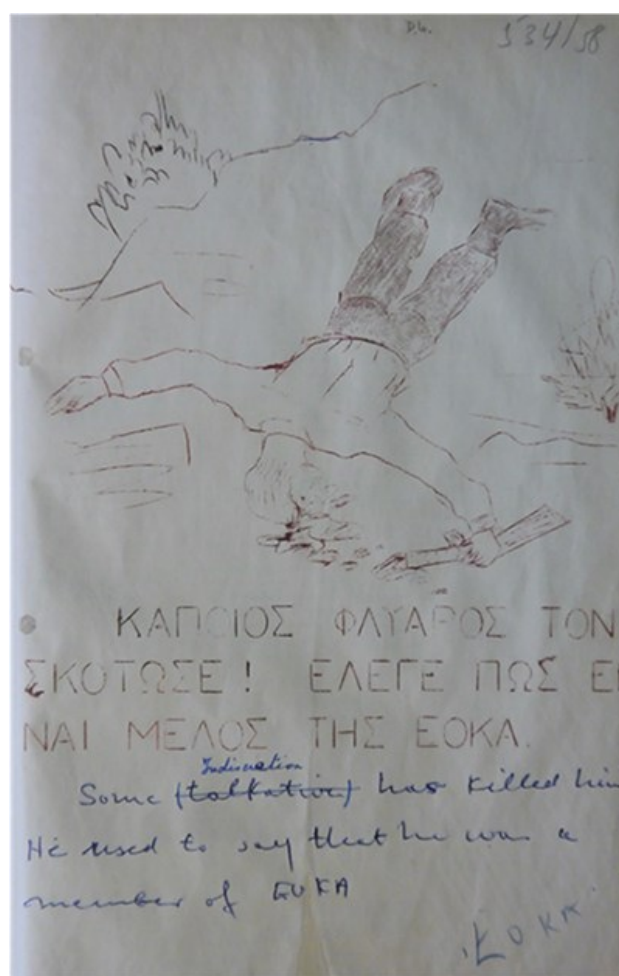 D.G.
534/58
ΚΑΠΟΙΟΣ ΦΛΥΑΡΟΣ ΤΟΝ
ΣΚΟΤΩΣΕ! ΕΛΕΓΕ ΠΩΣ ΕΙ
ΝΑΙ ΜΕΛΟΣ ΤΗΣ ΕΟΚΑ.
Indiscretion
Some (talkative) has killed him
He used to say that he was a
member of EOKA
ΕΟΚΑ.